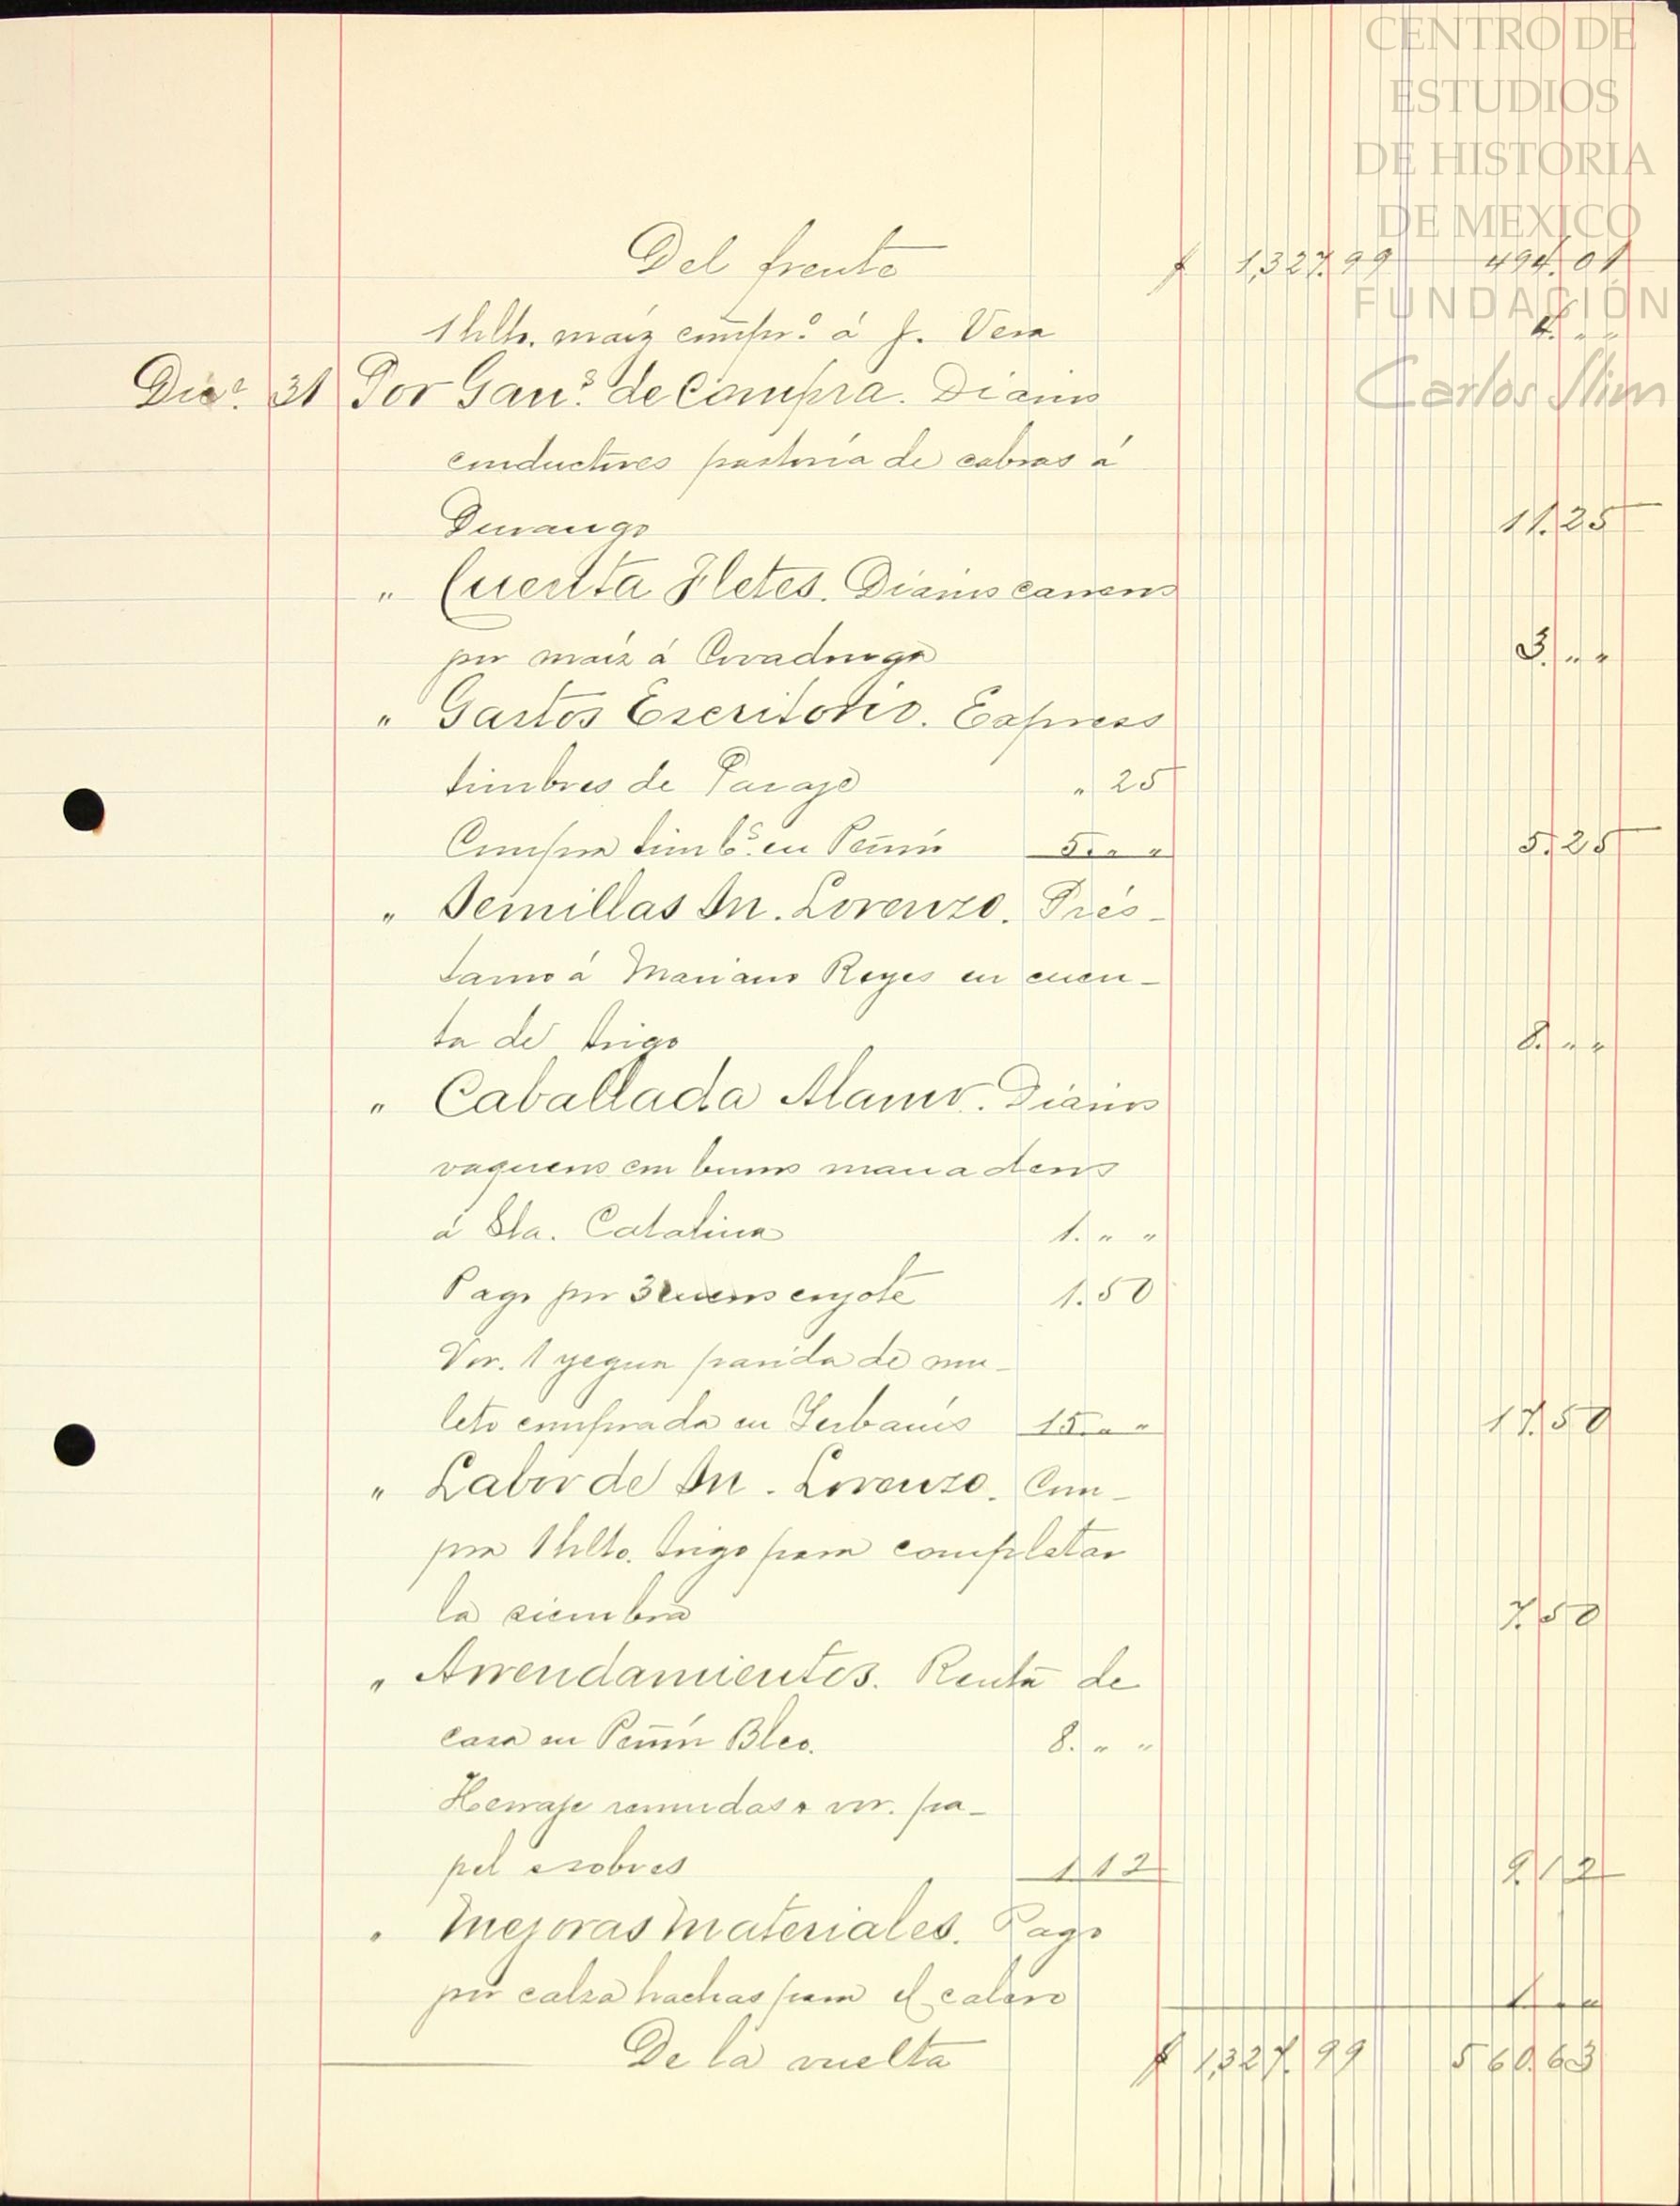 CENTRO DE
ESTUDIOS
DE HISTORIA
DE MEXICO
FUNDACIÓN
Carlos Slim
Del frente $ 1,327.99 494.01
1 hlto. maíz compr.º á J. Vera 4. " "
Dic.e 31 Por Gan.s de Compra. Diarios
conductores pastoría de cabras á
Durango 11.25
" Cuenta Fletes. Diarios carreros
por maíz á Covadonga 3. " "
" Gastos Escritorio. Express
timbres de Pasaje " 25
Compra timb.s en Peñón 5. " " 5.25
" Semillas Sn. Lorenzo. Prés-
tamo á Mariano Reyes en cuen-
ta de trigo 8. " "
" Caballada Alamo. Diarios
vaqueros con burros manaderos
á Sta. Catalina 1. " "
Pago por 3 cueros coyote 1.50
Vor. 1 yegua parida de mu-
leto comprada en Yerbanís 15. " " 17.50
" Labor de Sn. Lorenzo. Com-
pra 1 hlto. trigo para completar
la siembra 7.50
" Arrendamientos. Renta de
casa en Peñón Blco. 8. " "
Herraje remudas y vor. pa-
pel y sobres 1 12 9.12
" Mejoras Materiales. Pago
por calsa hachas para el calero 1 " "
De la vuelta $ 1,327.99 560.63